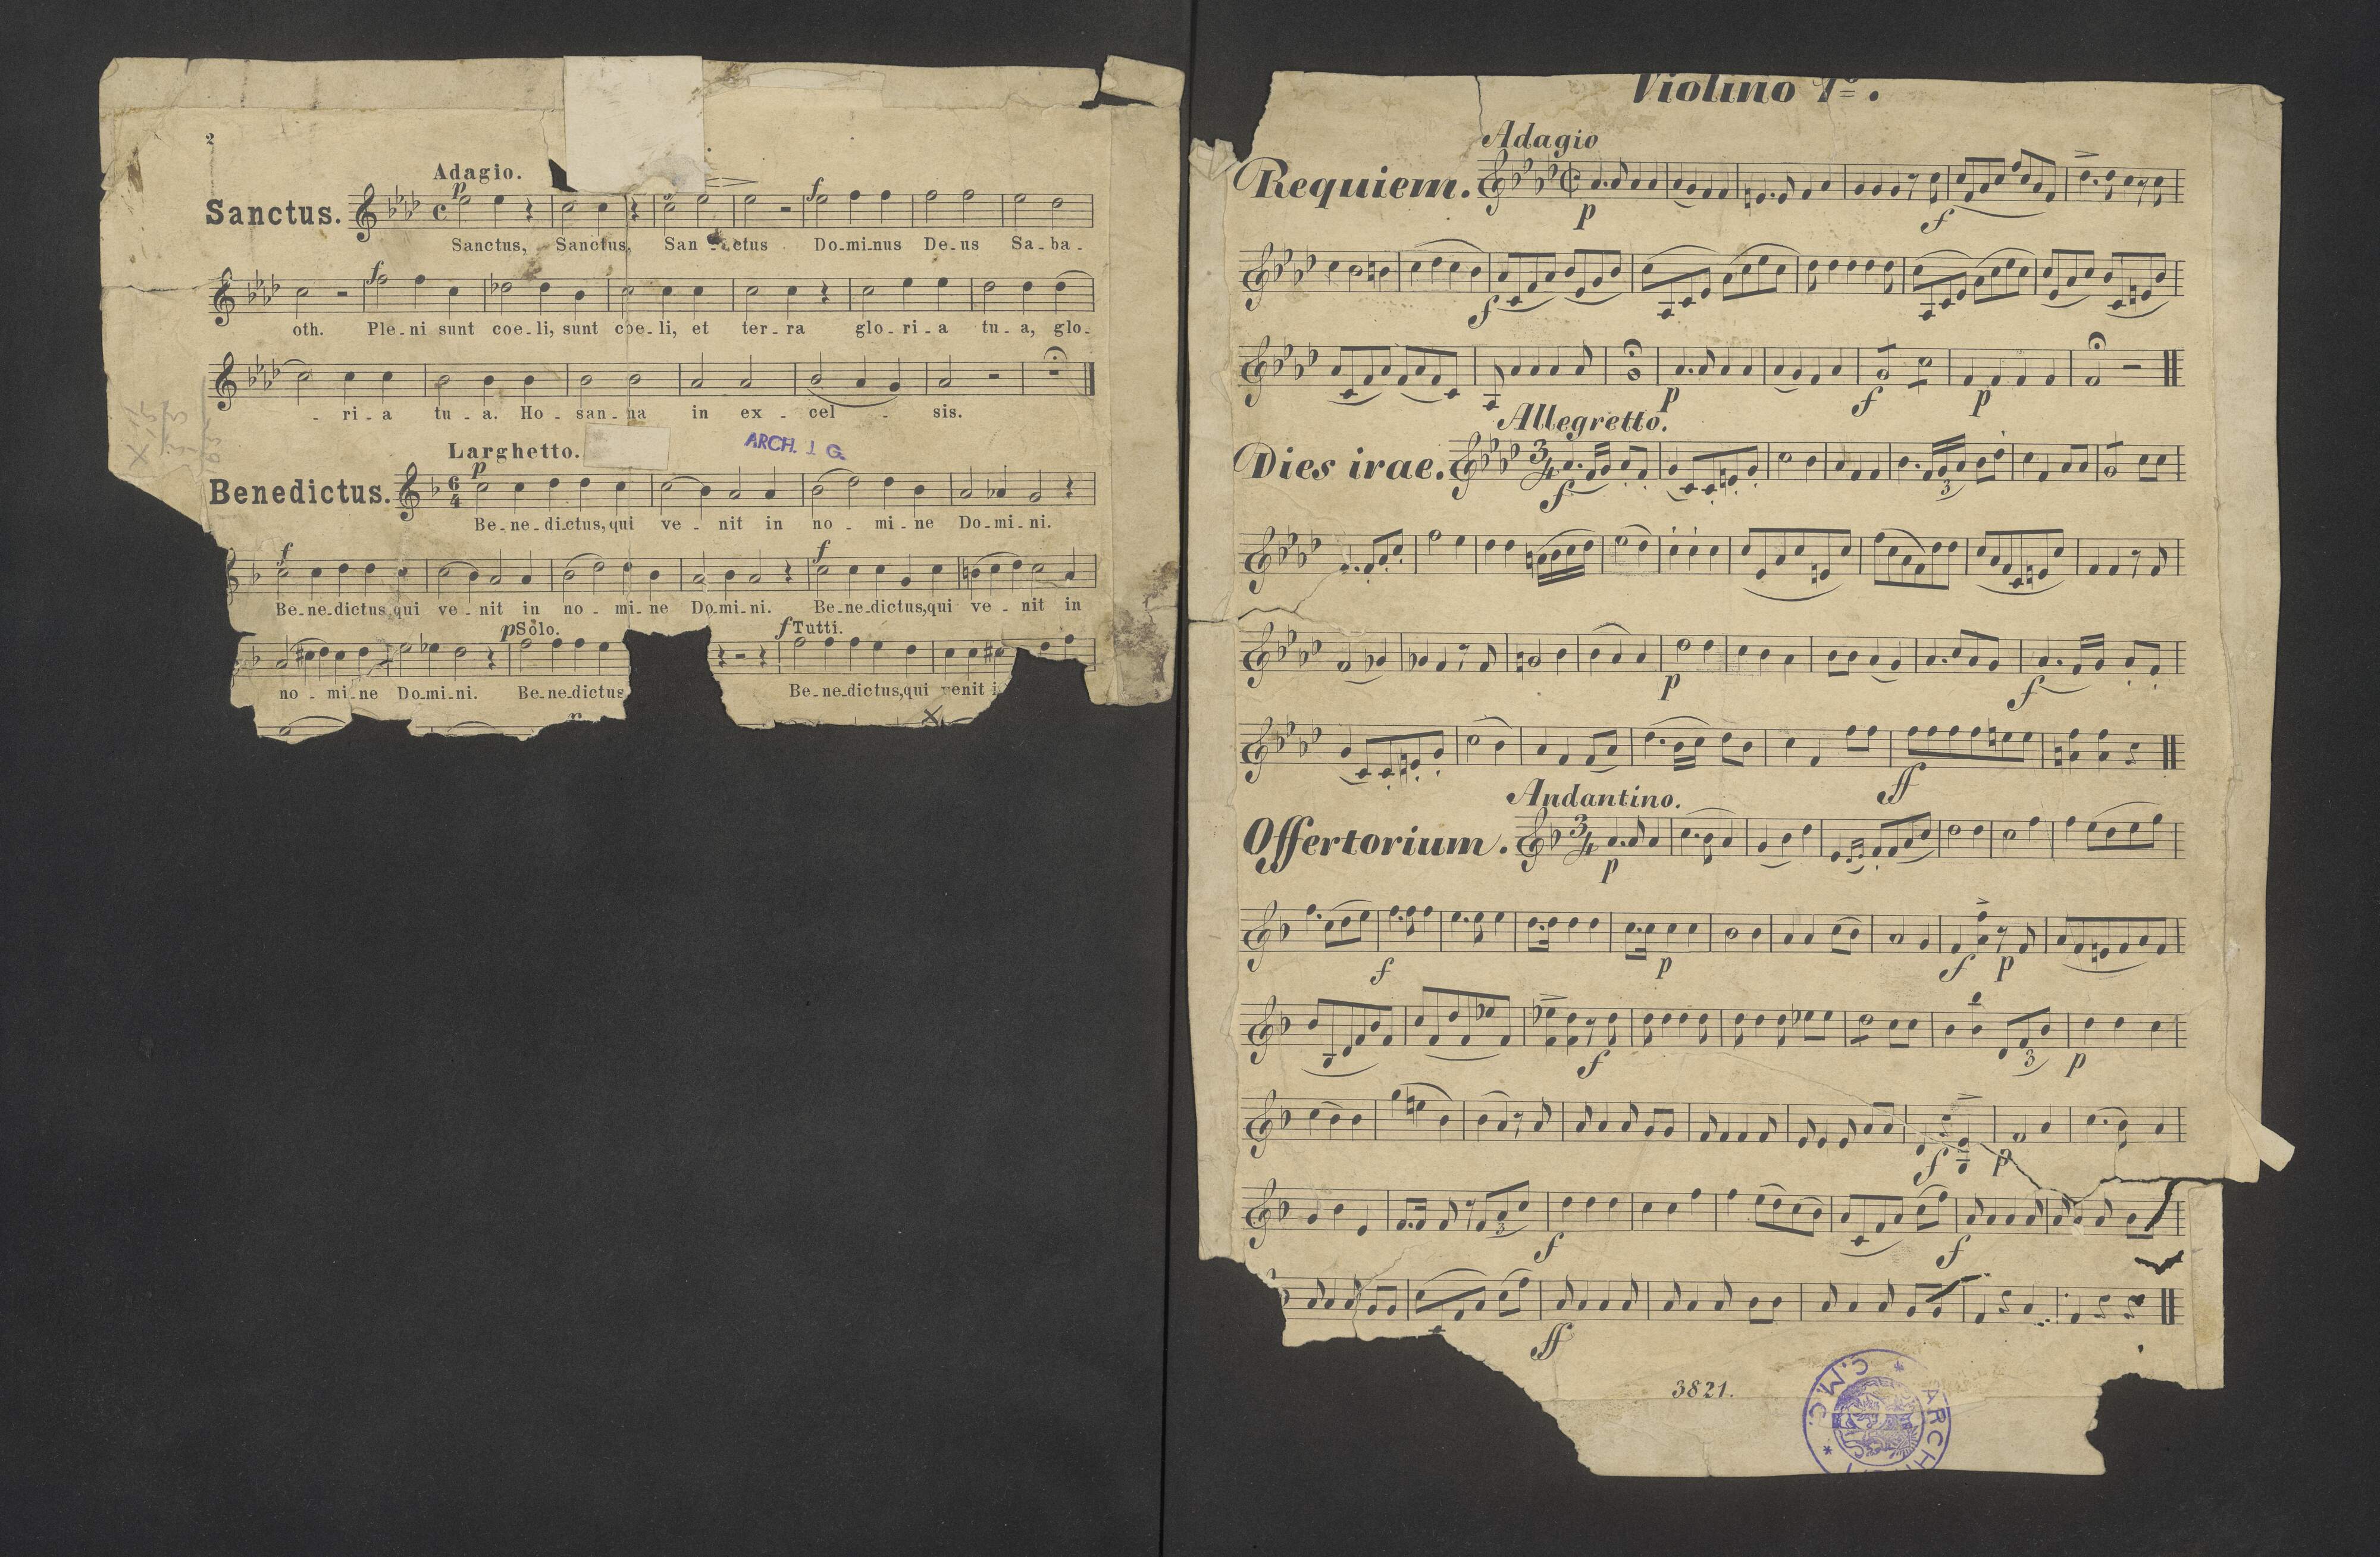 2
Adagio.
p
f
Sanctus.
c
Sanctus, Sanctus, San - ctus Do-mi-nus De-us Sa-ba-
f
oth. Ple-ni sunt coe-li, sunt coe-li, et ter-ra glo-ri-a tu-a, glo-
- ri-a tu-a. Ho-san-na in ex-cel - sis.
Larghetto.
ARCH. J G.
p
Benedictus.
6
4
Be-ne-dictus, qui ve-nit in no-mi-ne Do-mi-ni.
f f
Be-ne-dictus qui ve-nit in no-mi-ne Do-mi-ni. Be-ne-dictus, qui ve-nit in
p Solo. f Tutti.
no-mi-ne Do-mi-ni. Be-ne-dictus Be-ne-dictus, qui venit
Violino 1º.
Adagio
Requiem.
p f
f
p f p
Allegretto.
Dies irae.
3
4
f 3
p f
ff
Andantino.
Offertorium.
3
4
p
f p f p
f 3 p
f p
3 f f
ff
3821.
* ARCH
C.M.C. *